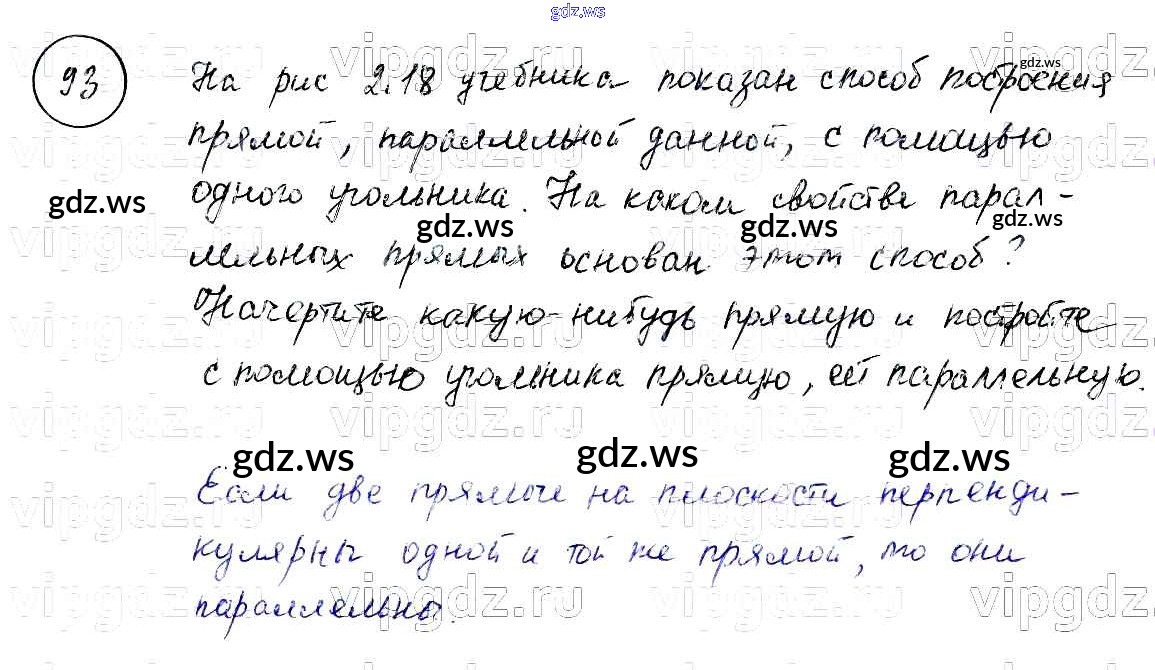 gdz.ws
93 На рис 2.18 учебника показан способ построения
прямой, параллельной данной, с помощью
одного угольника. На каком свойстве парал-
лельных прямых основан этот способ?
Начертите какую-нибудь прямую и постройте
с помощью угольника прямую, ей параллельную.
Если две прямые на плоскости перпенди-
кулярны одной и той же прямой, то они
параллельны.
gdz.ws
gdz.ws
gdz.ws
gdz.ws
gdz.ws
gdz.ws
gdz.ws
gdz.ws
vipgdz.ru